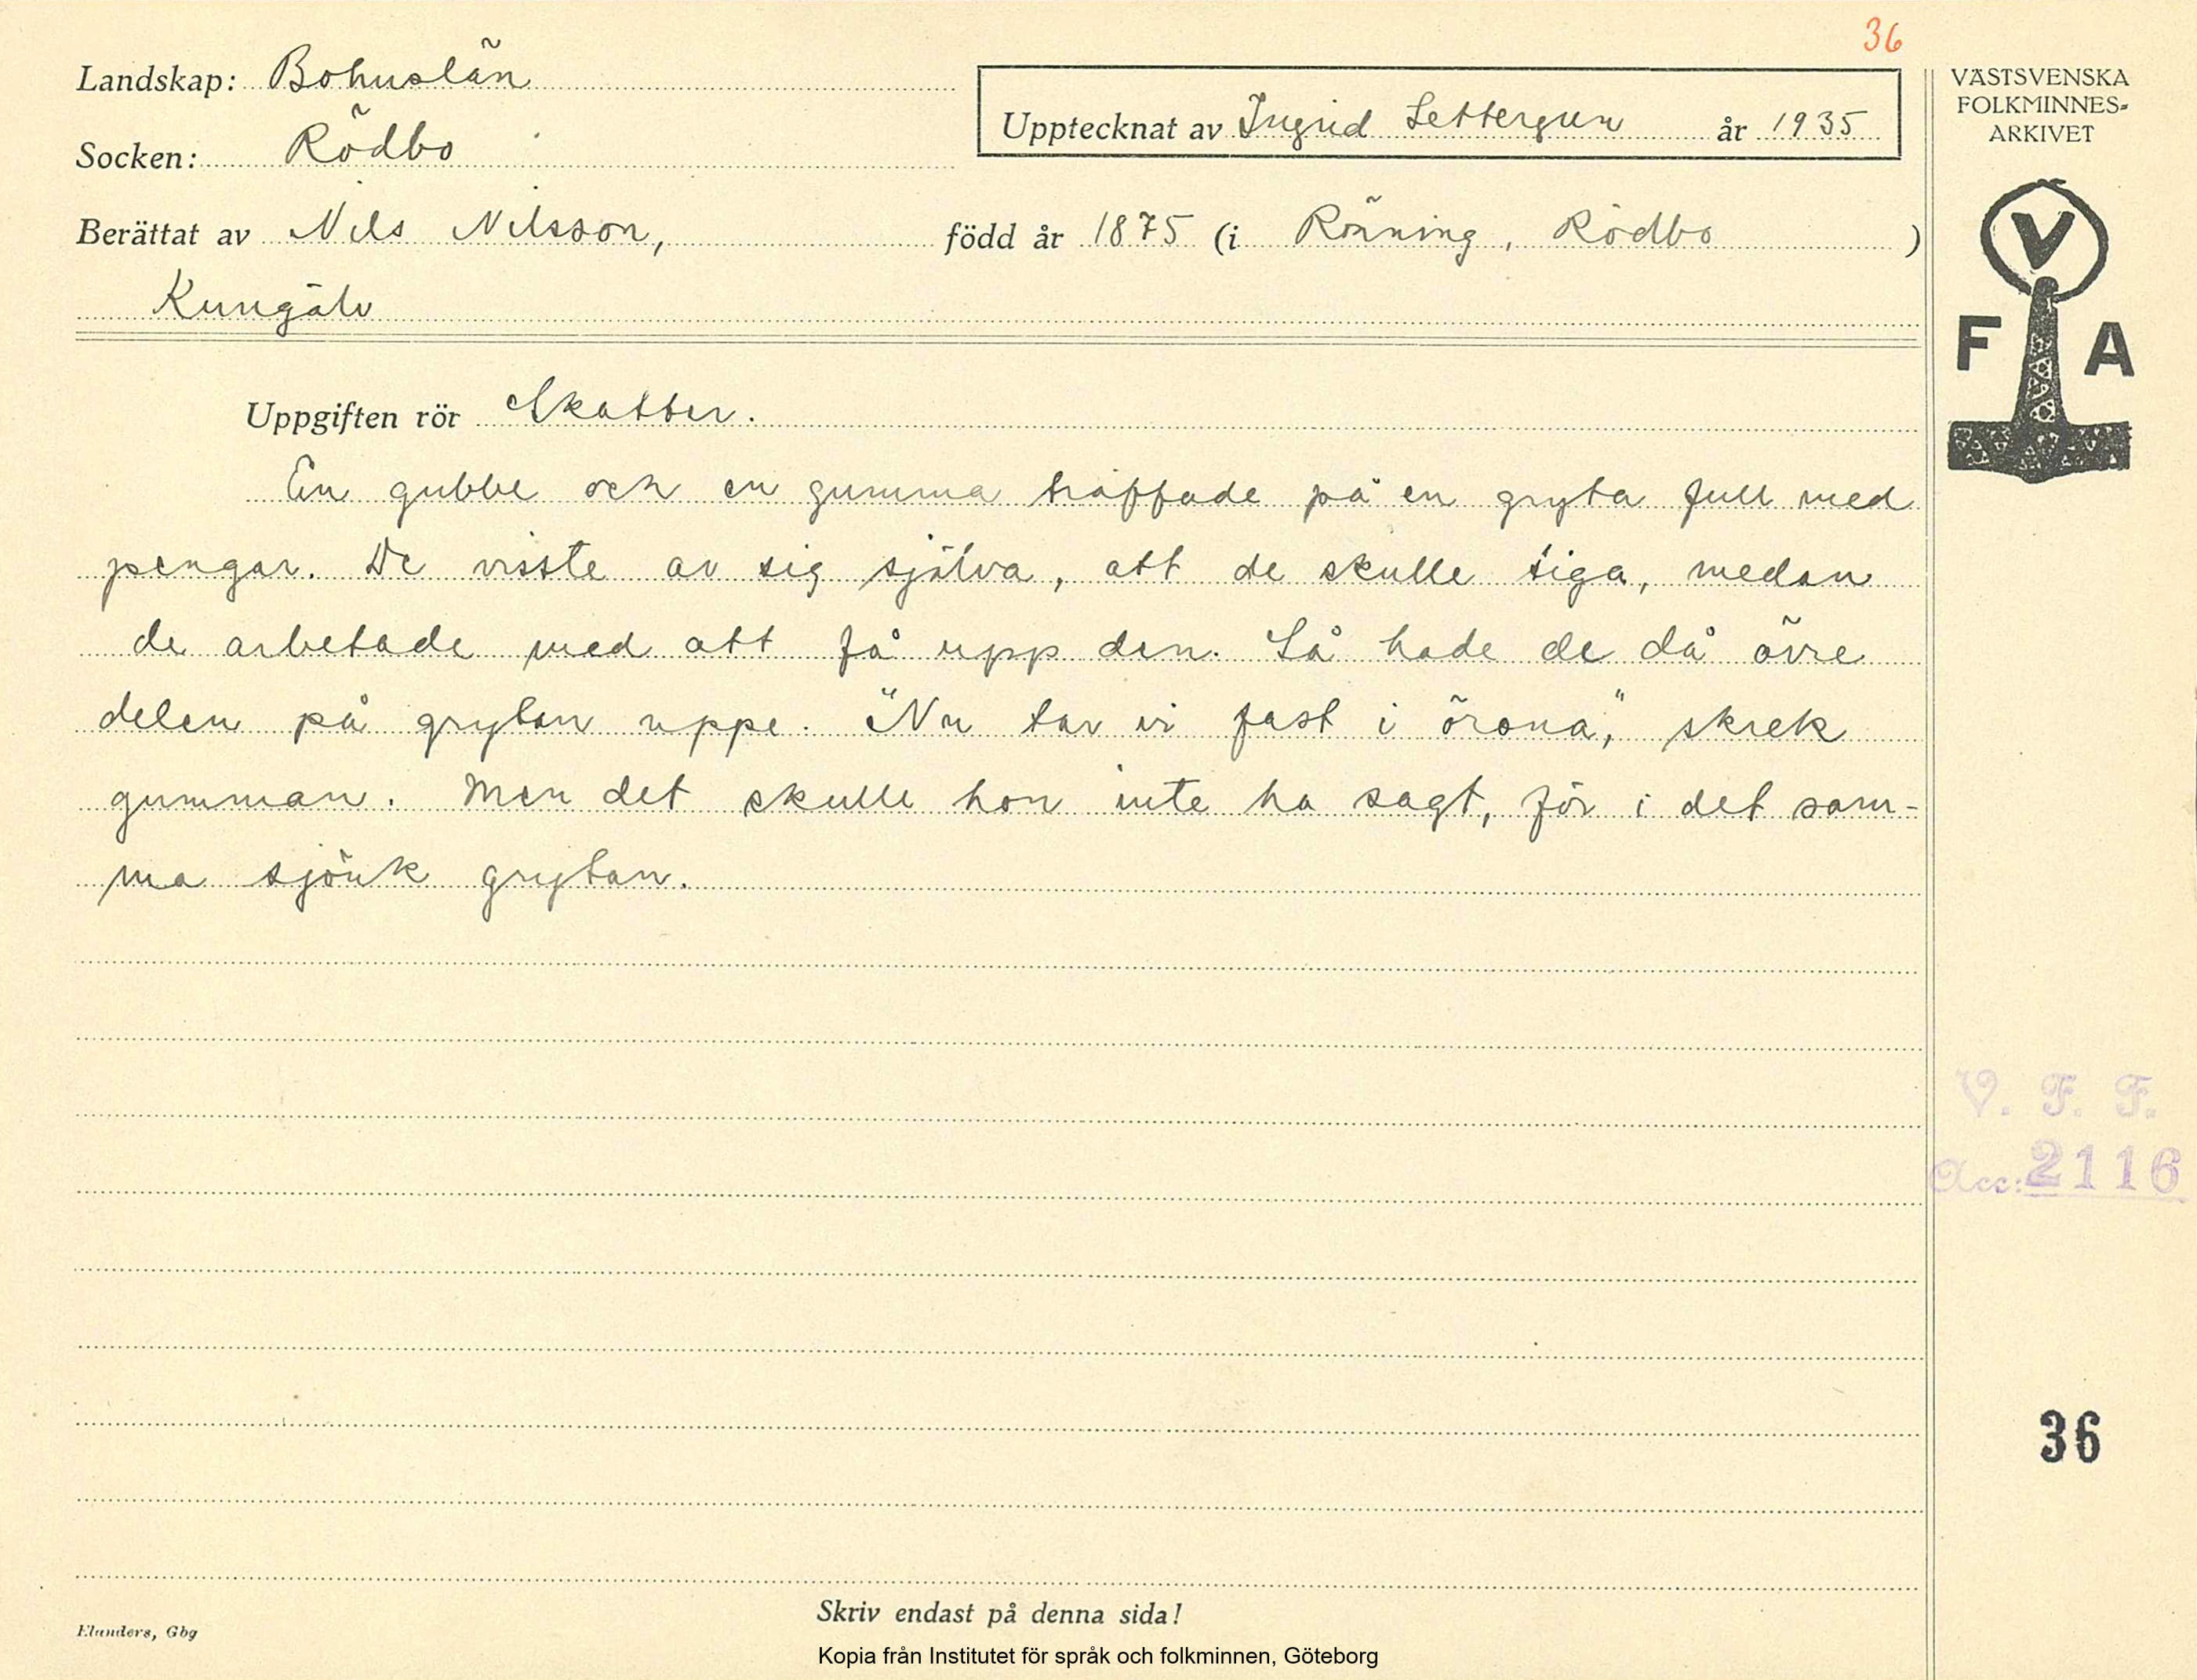 36
Landskap: Bohuslän
Socken: Rödbo
Upptecknat av Ingrid Settergren år 1935
Berättat av Nils Nilsson, född år 1875 (i Röäning, Rödbo )
Kungälv
Uppgiften rör Skatter.
En gubbe och en gumma träffade på en gryta full med
pengar. De visste av sig själva, att de skulle tiga, medan
de arbetade med att få upp den. Så hade de då övre
delen på grytan uppe. "Nu tar vi fast i örona", skrek
gumman. Men det skulle hon inte ha sagt, för i det sam-
ma sjönk grytan.
Skriv endast på denna sida!
Elanders, Gbg
Kopia från Institutet för språk och folkminnen, Göteborg
VÄSTSVENSKA
FOLKMINNES-
ARKIVET
V
F A
V. F. F.
Acc: 2116
36